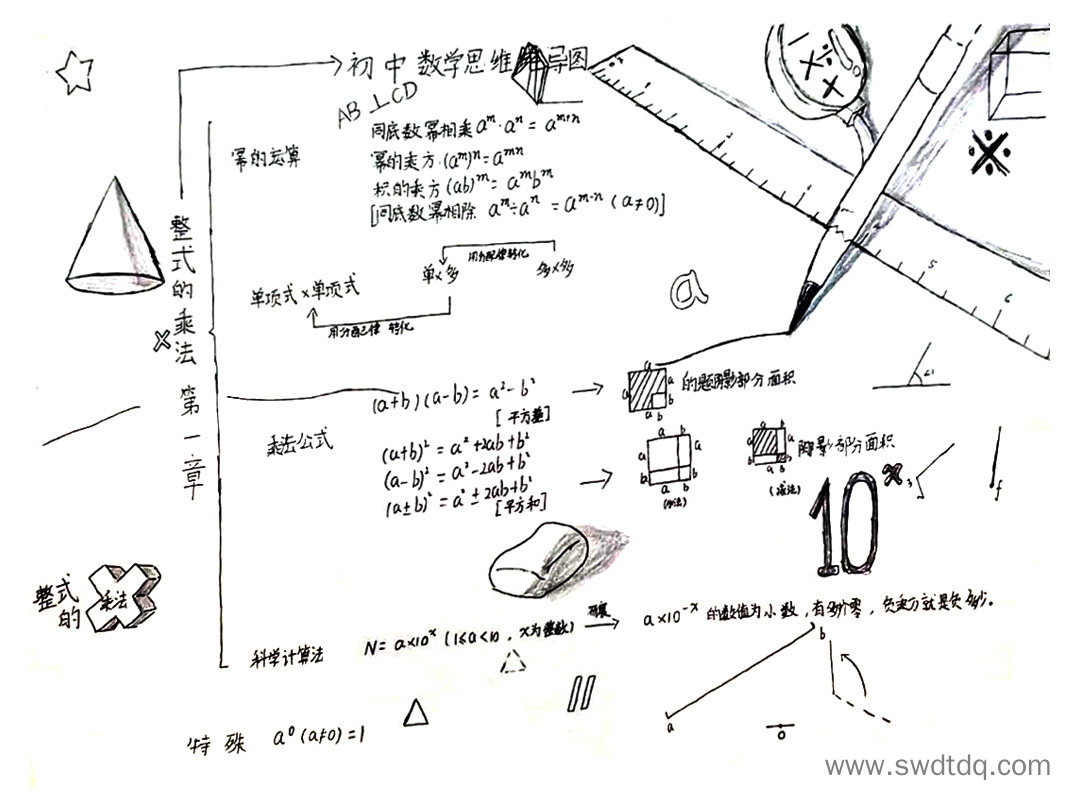 初中数学思维导图
AB⊥CD
整式的乘法 第一章
幂的运算
同底数幂相乘 aᵐ·aⁿ = aᵐ⁺ⁿ
幂的乘方 (aᵐ)ⁿ = aᵐⁿ
积的乘方 (ab)ᵐ = aᵐbᵐ
[同底数幂相除 aᵐ÷aⁿ = aᵐ⁻ⁿ (a≠0)]
用分配律转化
单项式×单项式 单×多 多×多
用分配律 转化
a
乘法公式
(a+b)(a-b) = a²-b²
[平方差]
阴影部分面积
a
a b
b
a b
(a+b)² = a²+2ab+b²
(a-b)² = a²-2ab+b²
(a±b)² = a²±2ab+b²
[平方和]
a b
b
a a
b
a b
阴影部分面积
(减法)
10ˣ
5
6
∠1
3
f
整式的
乘法
科学计算法
N = a×10ˣ (1≤a<10, x为整数)
a×10⁻ˣ 的数值为小数,有多少个零,负乘方就是负多少。
a
b
0
特殊 a⁰(a≠0)=1
www.swdtdq.com